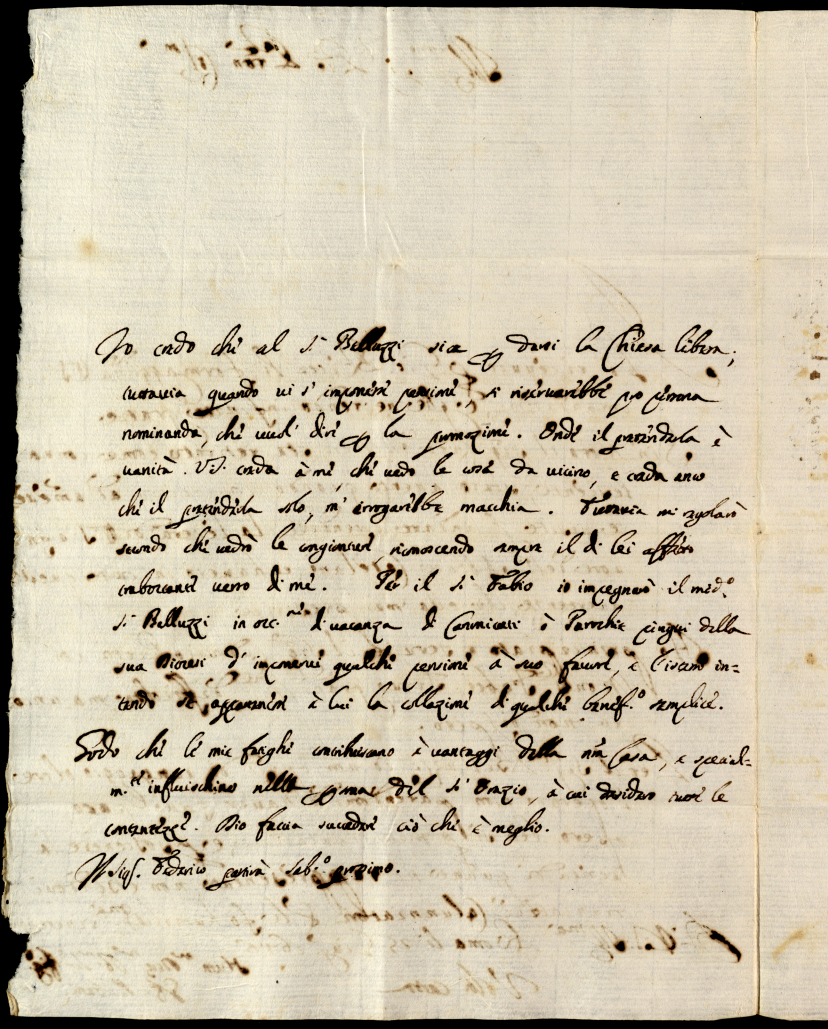 Io credo che al S.r Belluzzi sia per darsi la Chiesa libera;
tuttavia quando vi s'imponesse pensione, si riservarebbe pro persona
nominanda, che vuol dire per la promozione. Onde il pretenderla è
vanità. V.S. creda à me, che vedo le cose da vicino, e creda anco
che il pretenderla solo, m'arrogarebbe macchia. Tuttavia mi regolarò
secondo che vedrò le congionture, riconoscendo sempre il di lei affetto
traboccante verso di me. Per il S.r Fabio io impegnarò il med.o
S.r Belluzzi in occ.ne di vacanza di Canonicati ò Parochie pingui della
sua Diocesi d'imponervi qualche pensione à suo favore, e l'istesso in-
tendo se appartenesse à lui la collazione di qualche benef.o semplice.
Godo che le mie fatighe contribuiscano à vantaggi della n̄ra Casa, e special-
m.te influischino nella persona del S.r Orazio, à cui desidero tutte le
contentezze. Dio faccia succedere ciò che è meglio.
Msig.r Federico partirà Sab.o prossimo.